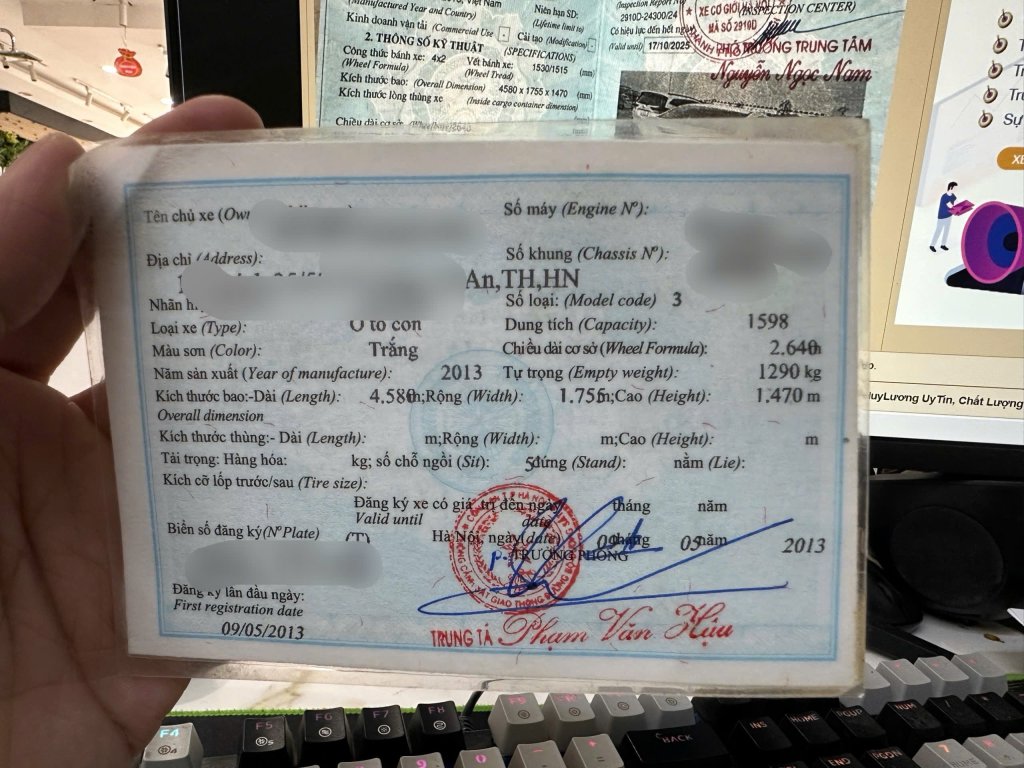 (Manufactured Year and Country)
Niên hạn SD:
(Lifetime limit to)
Kinh doanh vận tải (Commercial Use
Cải tạo (Modification)
2. THÔNG SỐ KỸ THUẬT
(SPECIFICATIONS)
Công thức bánh xe: 4x2
(Wheel Formula)
Vết bánh xe: 1530/1515 (mm)
(Wheel Tread)
Kích thước bao: (Overall Dimension) 4580 x 1755 x 1470 (mm)
Kích thước lòng thùng xe
(Inside cargo container dimension)
Chiều dài cơ sở
(Inspection Report
2910D-24300/24
Có hiệu lực đến hết ngày
(Valid until) 17/10/2025
XE CƠ GIỚI
INSPECTION CENTER)
MÃ SỐ 2910D
PHÓ TRƯỞNG TRUNG TÂM
Nguyễn Ngọc Nam
Sự
XE
HuyLương UyTín, Chất Lượng
Tên chủ xe
Số máy (Engine Nº):
Địa chỉ (Address):
Số khung (Chassis Nº):
An,TH,HN
Nhãn
Số loại: (Model code) 3
Loại xe (Type): Ô tô con
Dung tích (Capacity): 1598
Màu sơn (Color): Trắng
Chiều dài cơ sở (Wheel Formula): 2.640m
Năm sản xuất (Year of manufacture): 2013
Tự trọng (Empty weight): 1290 kg
Kích thước bao:-Dài (Length): 4.580m;Rộng (Width): 1.755m;Cao (Height): 1.470 m
Overall dimension
Kích thước thùng:- Dài (Length): m;Rộng (Width): m;Cao (Height): m
Tải trọng: Hàng hóa: kg; số chỗ ngồi (Sit): 5 đứng (Stand): nằm (Lie):
Kích cỡ lốp trước/sau (Tire size):
Đăng ký xe có giá trị đến ngày tháng năm
Valid until date
Biển số đăng ký(Nº Plate) (T)
Hà Nội, ngày(date) 09 tháng 05 năm 2013
TRƯỞNG PHÒNG
Đăng ký lần đầu ngày:
First registration date
09/05/2013
TRUNG TÁ Phạm Văn Hậu
F4
F5
F6
F7
F8
INS
HOME
PGUP
NUM
BACK
END
PGDN